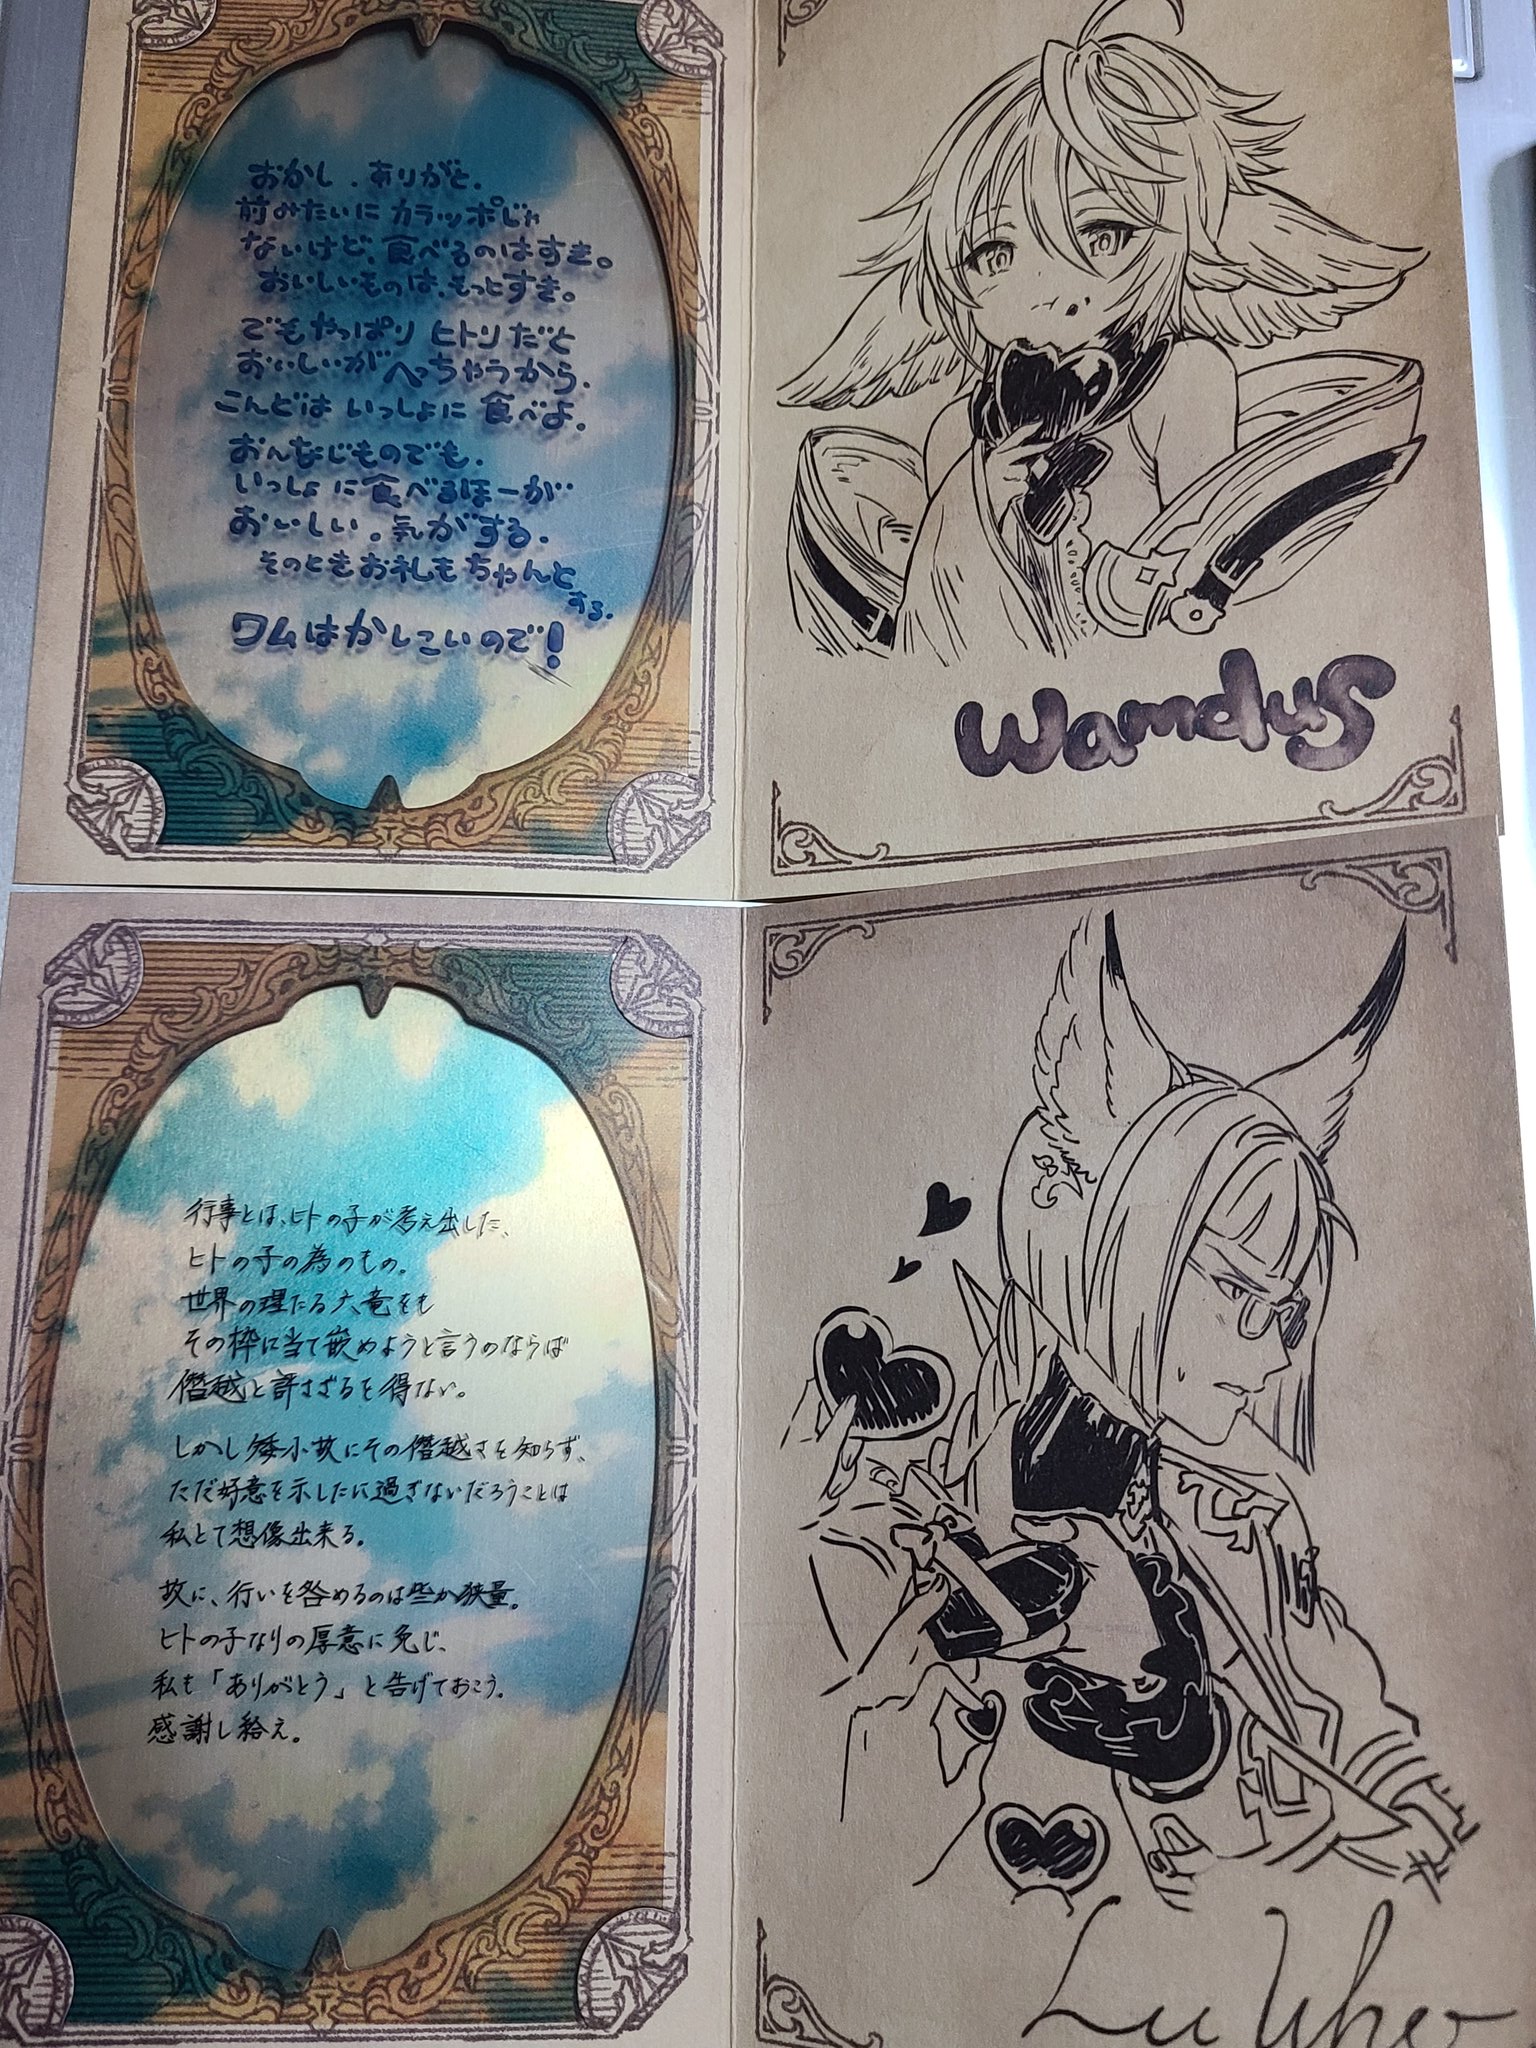 おかし、ありがと。
前みたいにカラッポじゃ
ないけど、食べるのはすき。
おいしいものは、もっとすき。
でもやっぱり ヒトリだと
おいしいがへっちゃうから、
こんどは いっしょに 食べよ。
おんなじものでも、
いっしょに食べるほーが
おいしい。気がする。
そのときお礼もちゃんと
する。
ワムはかしこいので！
Wamdus
行事とは、ヒトの子が考え出した、
ヒトの子の為のもの。
世界の理たる六竜をも
その枠に当て嵌めようと言うのならば
僭越と評さざるを得ない。
しかし矮小故にその僭越さを知らず、
ただ好意を示したに過ぎないだろうことは
私とて想像出来る。
故に、行いを咎めるのは些か狭量。
ヒトの子なりの厚意に免じ、
私も「ありがとう」と告げておこう。
感謝し給え。
Lu Who